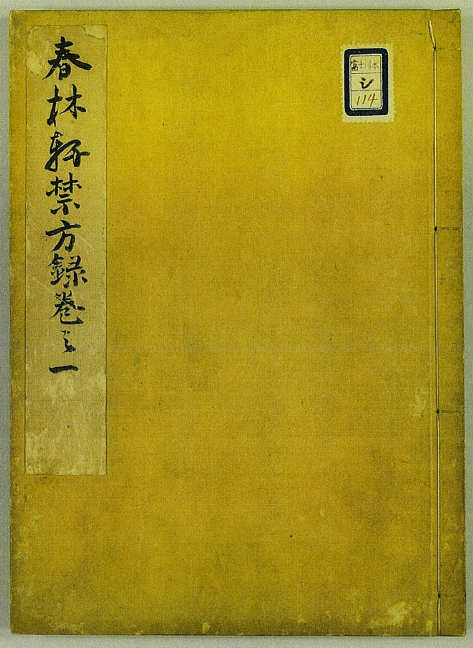 春林軒禁方録巻之一
富士川本
シ
114